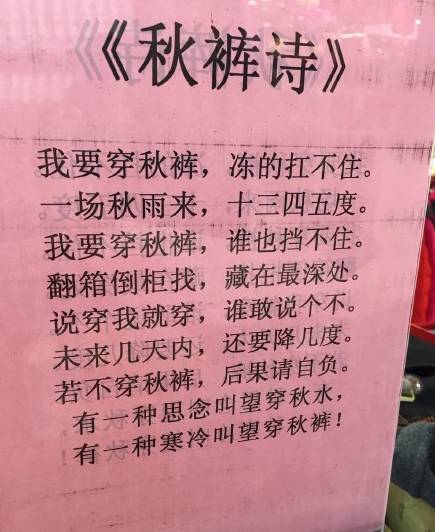 《秋裤诗》
我要穿秋裤，冻的扛不住。
一场秋雨来，十三四五度。
我要穿秋裤，谁也挡不住。
翻箱倒柜找，藏在最深处。
说穿我就穿，谁敢说个不。
未来几天内，还要降几度。
若不穿秋裤，后果请自负。
有一种思念叫望穿秋水，
有一种寒冷叫望穿秋裤！